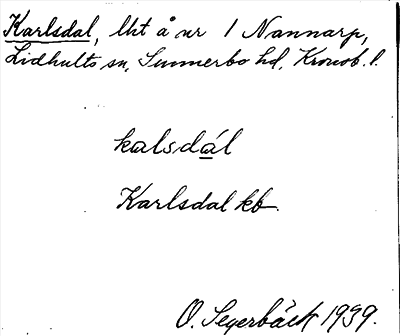 Karlsdal, lht å nr 1 Nannarp,
Lidhults sn, Sunnerbo hd, Kronob. l.
kalsdál
Karlsdal kb.
O. Segerbäck 1939.